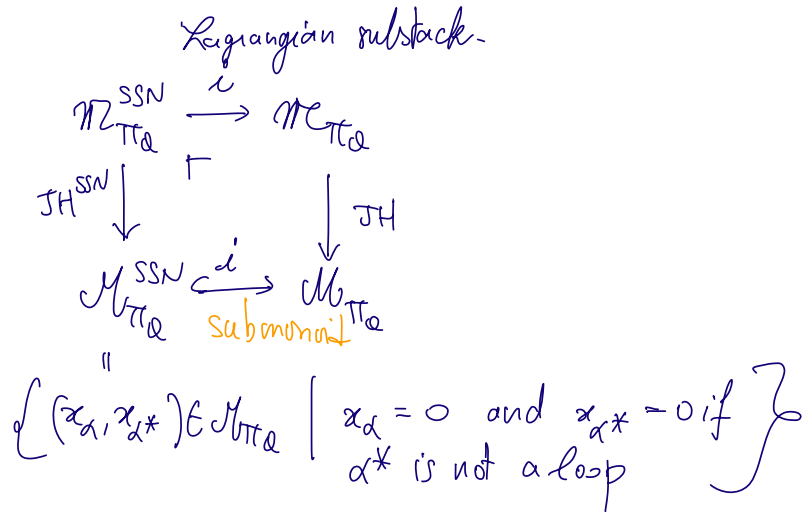 Lagrangian substack.
𝔐^{SSN}_{Π_Q} --i--> 𝔐_{Π_Q}
JH^{SSN} ↓ ↓ JH
ℳ^{SSN}_{Π_Q} --i--> ℳ_{Π_Q}
submonoid
||
{(x_α, x_{α*}) ∈ ℳ_{Π_Q} | x_α = 0 and x_{α*} = 0 if
α* is not a loop}